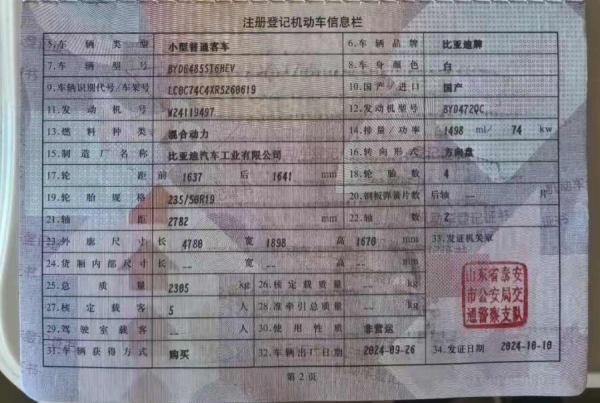 注册登记机动车信息栏
5.车辆类型 小型普通客车 6.车辆品牌 比亚迪牌
7.车辆型号 BYD6485ST6HEV 8.车身颜色 白
9.车辆识别代号/车架号 LC0C74C4XRS260619 10.国产/进口 国产
11.发动机号 W24119497 12.发动机型号 BYD472QC
13.燃料种类 混合动力 14.排量/功率 1498 ml/ 74 kw
15.制造厂名称 比亚迪汽车工业有限公司 16.转向形式 方向盘
17.轮距 前 1637 后 1641 mm 18.轮胎数 4
19.轮胎规格 235/50R19 20.钢板弹簧片数 后轴 -- 片
21.轴距 2782 mm 22.轴数 2
23.外廓尺寸 长 4780 宽 1898 高 1670 mm 33.发证机关章
24.货厢内部尺寸 长 -- 宽 -- 高 -- mm
25.总质量 2305 kg 26.核定载质量 -- kg
27.核定载客 5 人 28.准牵引总质量 -- kg
29.驾驶室载客 -- 人 30.使用性质 非营运
山东省泰安
市公安局交
通警察支队
31.车辆获得方式 购买 32.车辆出厂日期 2024-09-26 34.发证日期 2024-10-10
第2页